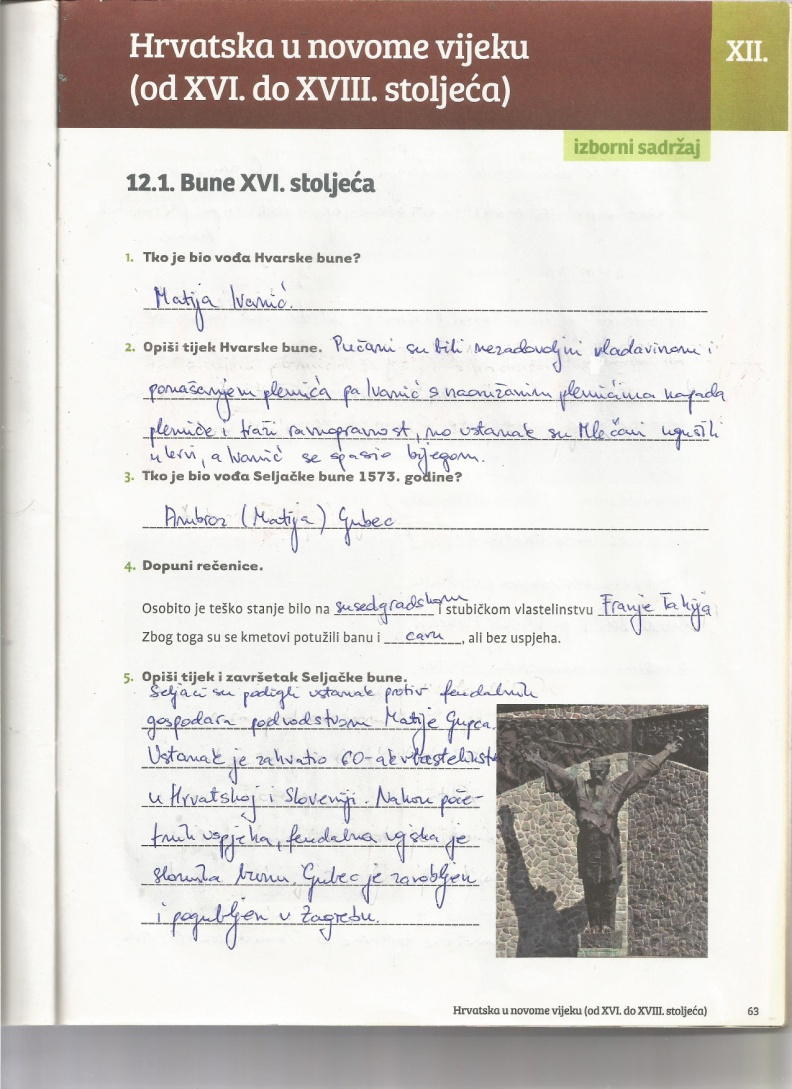 Hrvatska u novome vijeku
(od XVI. do XVIII. stoljeća)
XII.
izborni sadržaj
12.1. Bune XVI. stoljeća
1. Tko je bio vođa Hvarske bune?
Matija Ivanić.
2. Opiši tijek Hvarske bune. Pučani su bili nezadovoljni vladavinom i
ponašanjem plemića pa Ivanić s naoružanim plemićima napada
plemiće i traži ravnopravnost, no ustanak su Mlečani ugušili
u krvi, a Ivanić se spasio bijegom.
3. Tko je bio vođa Seljačke bune 1573. godine?
Ambroz (Matija) Gubec
4. Dopuni rečenice.
Osobito je teško stanje bilo na susedgradskom i stubičkom vlastelinstvu Franje Tahija
Zbog toga su se kmetovi potužili banu i caru, ali bez uspjeha.
5. Opiši tijek i završetak Seljačke bune.
Seljaci su podigli ustanak protiv feudalnih
gospodara pod vodstvom Matije Gupca.
Ustanak je zahvatio 60-ak vlastelinstva
u Hrvatskoj i Sloveniji. Nakon poče-
tnih uspjeha, feudalna vojska je
slomila bunu. Gubec je zarobljen
i pogubljen u Zagrebu.
Hrvatska u novome vijeku (od XVI. do XVIII. stoljeća) 63